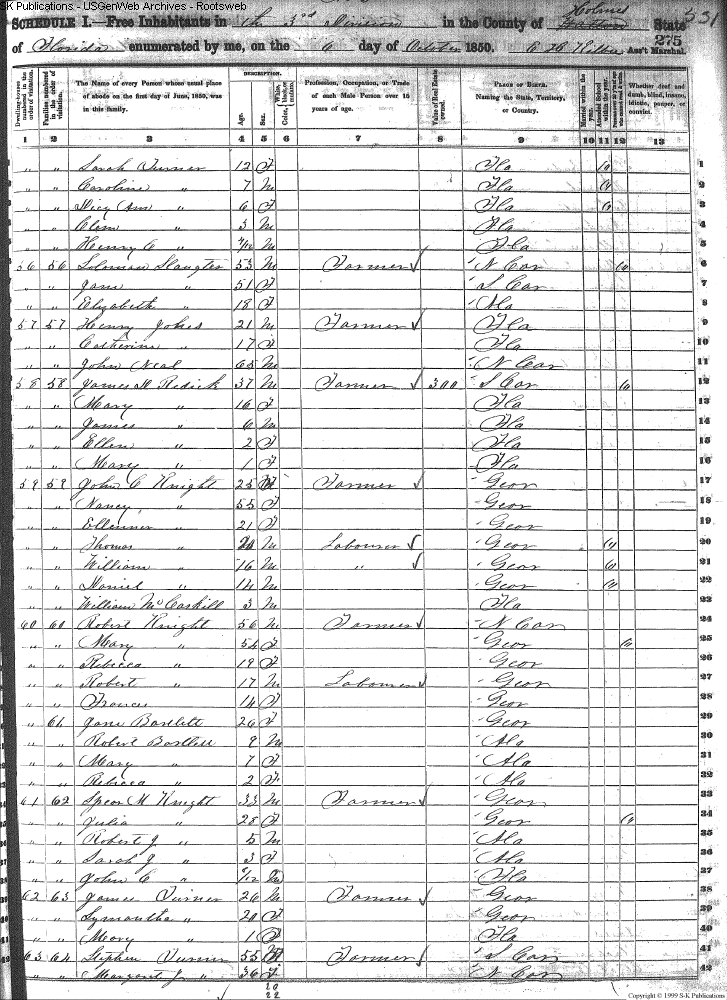 S-K Publications - USGenWeb Archives - Rootsweb
SCHEDULE I.—Free Inhabitants in 3rd Division in the County of State
of Florida enumerated by me, on the 6 day of October 1850. Ass't Marshal.
531
275
Dwelling-houses numbered in the order of visitation.
Families numbered in the order of visitation.
The Name of every Person whose usual place of abode on the first day of June, 1850, was in this family.
DESCRIPTION.
Age.
Sex.
White, black, or mulatto.
Color,
Profession, Occupation, or Trade of each Male Person over 15 years of age.
Value of Real Estate owned.
PLACE OF BIRTH. Naming the State, Territory, or Country.
Married within the year.
Attended School within the year.
Whether deaf and dumb, blind, insane, idiotic, pauper, or convict.
1 2 3 4 5 6 7 8 9 10 11 12 13
" " Sarah Turner 12 F Fla 1
" " Caroline " 7 M Fla 2
" " Dicy Ann " 6 F Fla 3
" " Clem " 3 M Fla 4
" " Henry C " M Fla 5
56 56 Soloman Slaugter 53 M Farmer N Car 6
" " Jane " 51 F S Car 7
" " Elizabeth " 18 F Ala 8
57 57 Henry Johns 21 M Farmer Fla 9
" " Catherine " 17 F Fla 10
" " John Neal 65 M N Car 11
58 58 James Redick 37 M Farmer 300 S Car 12
" " Mary " 16 F Fla 13
" " James " 6 M Fla 14
" " Ellen " 2 F Fla 15
" " Mary " 1 F Fla 16
59 59 John C Knight 25 M Farmer Geor 17
" " Nancy " 55 F Geor 18
" " Ellenner " 21 F Geor 19
" " Thomas " M Labourer Geor 20
" " William " 16 M " Geor 21
" " Daniel " 14 M Geor 22
" " William McCaskill 3 M Fla 23
60 60 Robert Knight 56 M Farmer N Car 24
" " Mary " 54 F Geor 25
" " Rebecca " 19 F Geor 26
" " Robert " 17 M Labourer Geor 27
" " Frances " 14 F Geor 28
" 61 Jane Bartlett 26 F Geor 29
" " Robert Bartlett 9 M Ala 30
" " Mary " 7 F Ala 31
" " Rebecca " 2 F Ala 32
61 62 Spear M Knight 33 M Farmer Geor 33
" " Julia " 28 F Geor 34
" " Robert J " 5 M Ala 35
" " Sarah J " 3 F Ala 36
" " John C " M Fla 37
62 63 James Turner 26 M Farmer Geor 38
" " Lymantha " 20 F Geor 39
" " Mary " 1 F Fla 40
63 64 Stephen Turner 55 M Farmer S Car 41
" " Margaret J " 36 F N Car 42
20
22
Copyright © 1999 S-K Publications